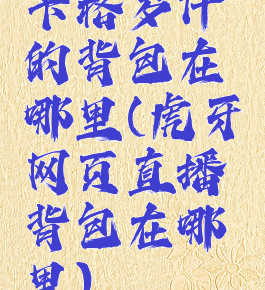 卡格罗什
的背包在
哪里(虎牙
网页直播
背包在哪
里)